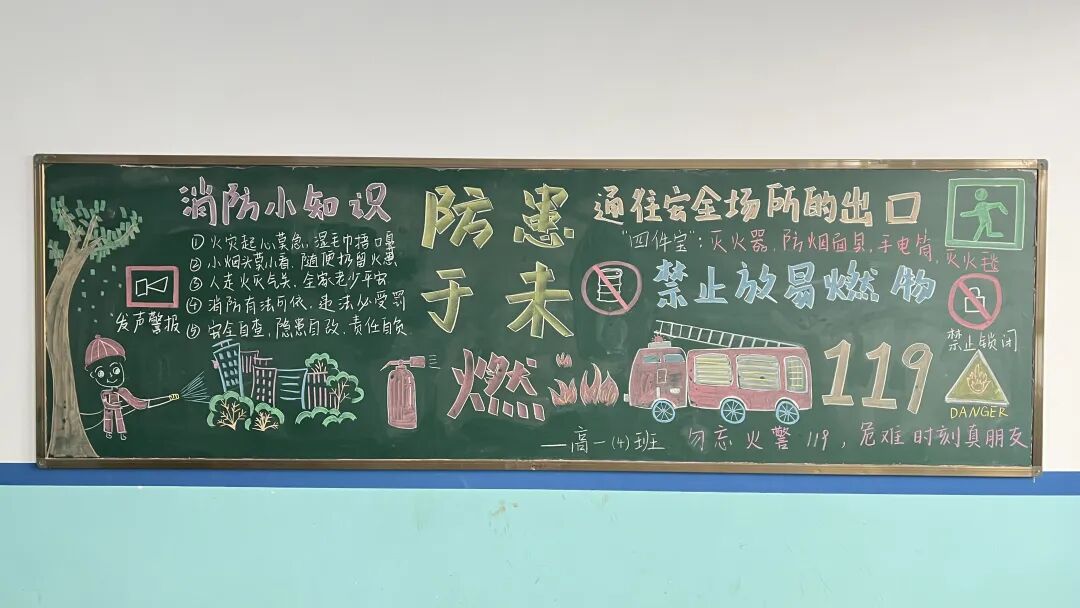 消防小知识
① 火灾起心莫急，湿毛巾捂口鼻
② 小烟头莫小看，随便扔留火患
③ 人走火灭气关，全家老少平安
④ 消防有法可依，违法必受罚
⑤ 安全自查，隐患自改，责任自负
发声警报
防患
于未
燃
通往安全场所的出口
"四件宝"：灭火器，防烟面具，手电筒，灭火毯
禁止放易燃物
禁止锁闭
119
DANGER
一高一（4）班 勿忘火警119，危难时刻真朋友